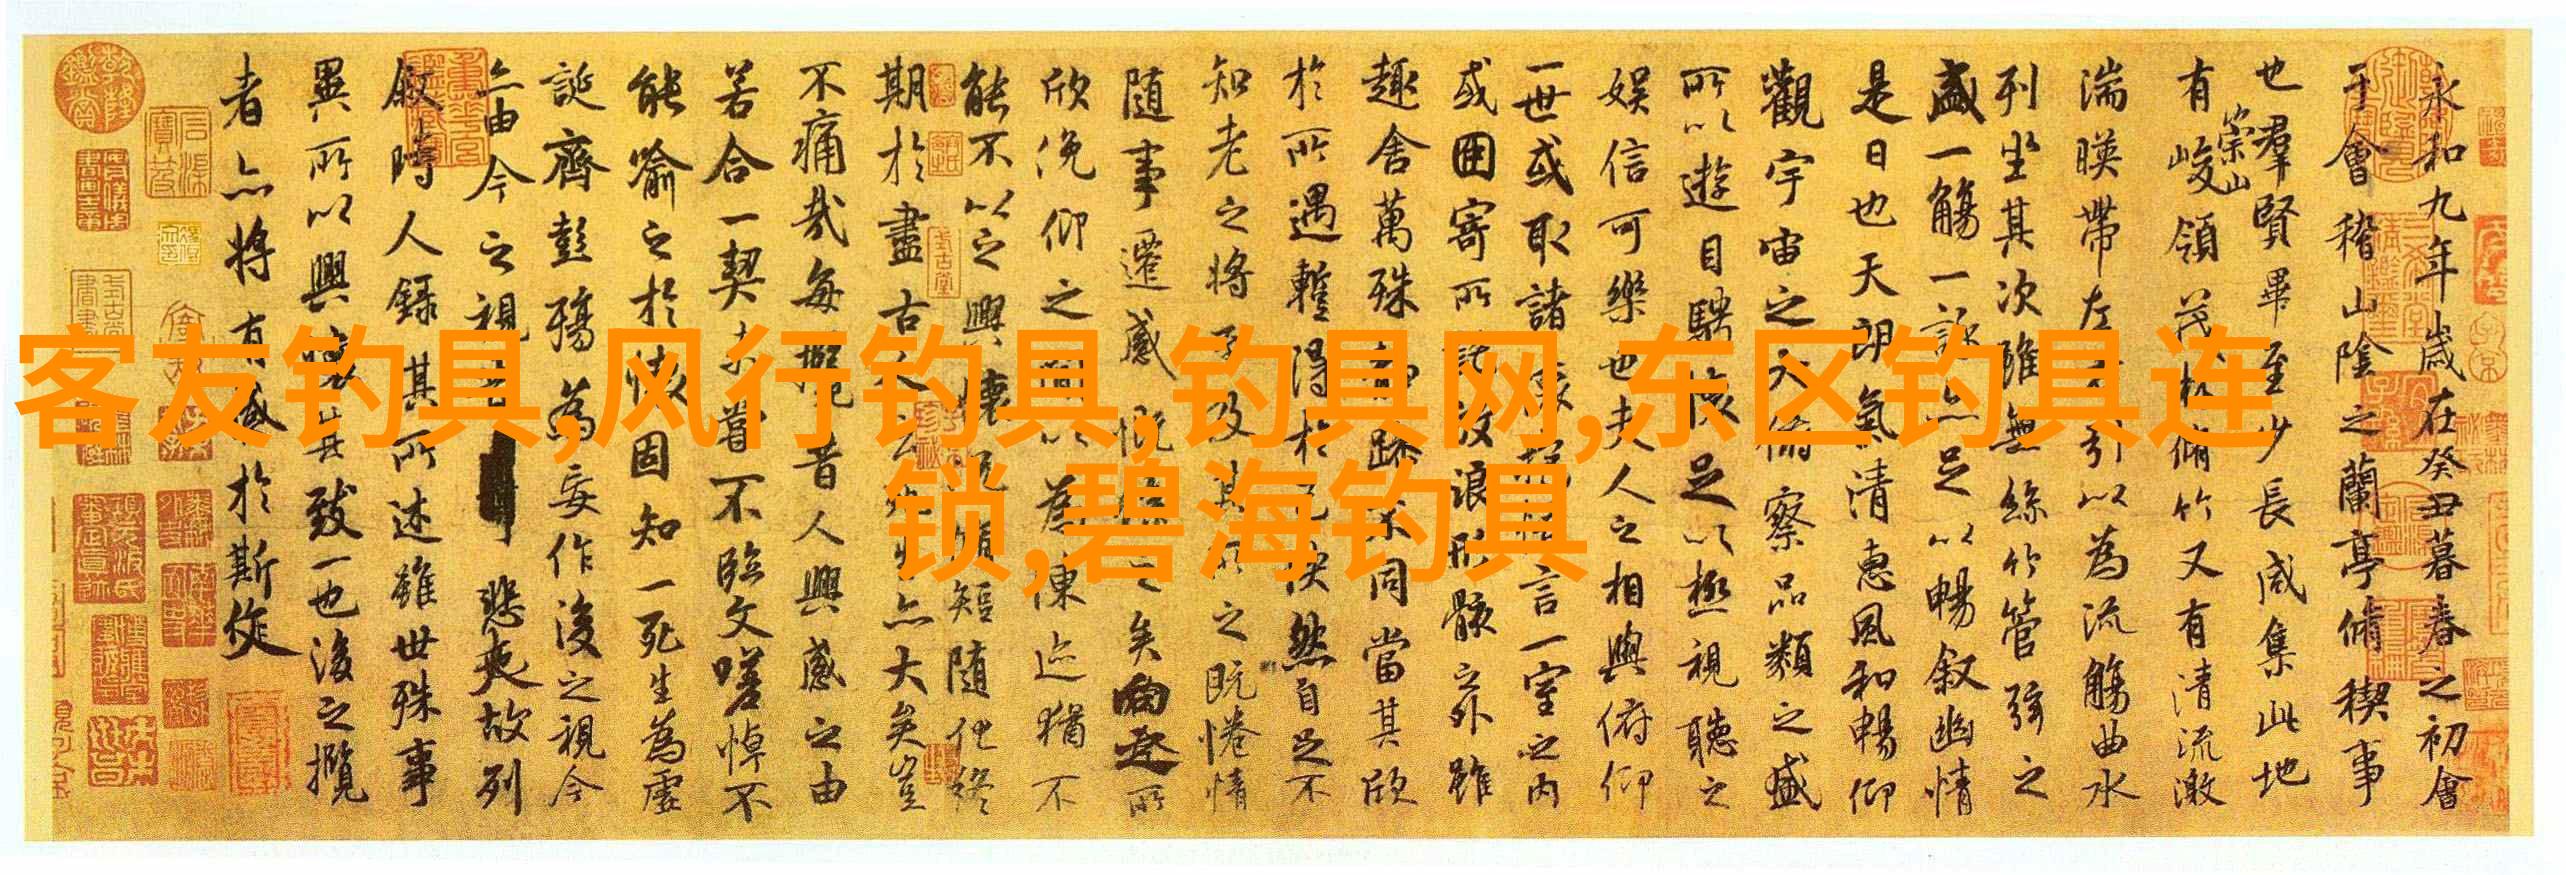 客友钓具,风行钓具,钓具网,东区钓具连
锁,碧海钓具
永和九年歲在癸丑暮春之初會
于會稽山陰之蘭亭脩稧事
也羣賢畢至少長咸集此地
有崇山峻領茂林脩竹又有清流激
湍暎帶左右引以為流觴曲水
列坐其次雖無絲竹管弦之
盛一觴一詠亦足以暢叙幽情
是日也天朗氣清惠風和暢仰
觀宇宙之大俯察品類之盛
所以遊目騁懷足以極視聽之
娛信可樂也夫人之相與俯仰
一世或取諸懷抱悟言一室之內
或因寄所託放浪形骸之外雖
趣舍萬殊靜躁不同當其欣
於所遇蹔得於己快然自足不
知老之將至及其所之既惓情
隨事遷感慨係之矣向之所
欣俛仰之間以為陳迹猶不
能不以之興懷況脩短隨化終
期於盡古人云死生亦大矣豈
不痛哉每攬昔人興感之由
若合一契未嘗不臨文嗟悼不
能喻之於懷固知一死生為虛
誕齊彭殤為妄作後之視今
亦由今之視昔悲夫故列
叙時人錄其所述雖世殊事
異所以興懷其致一也後之攬
者亦將有感於斯文